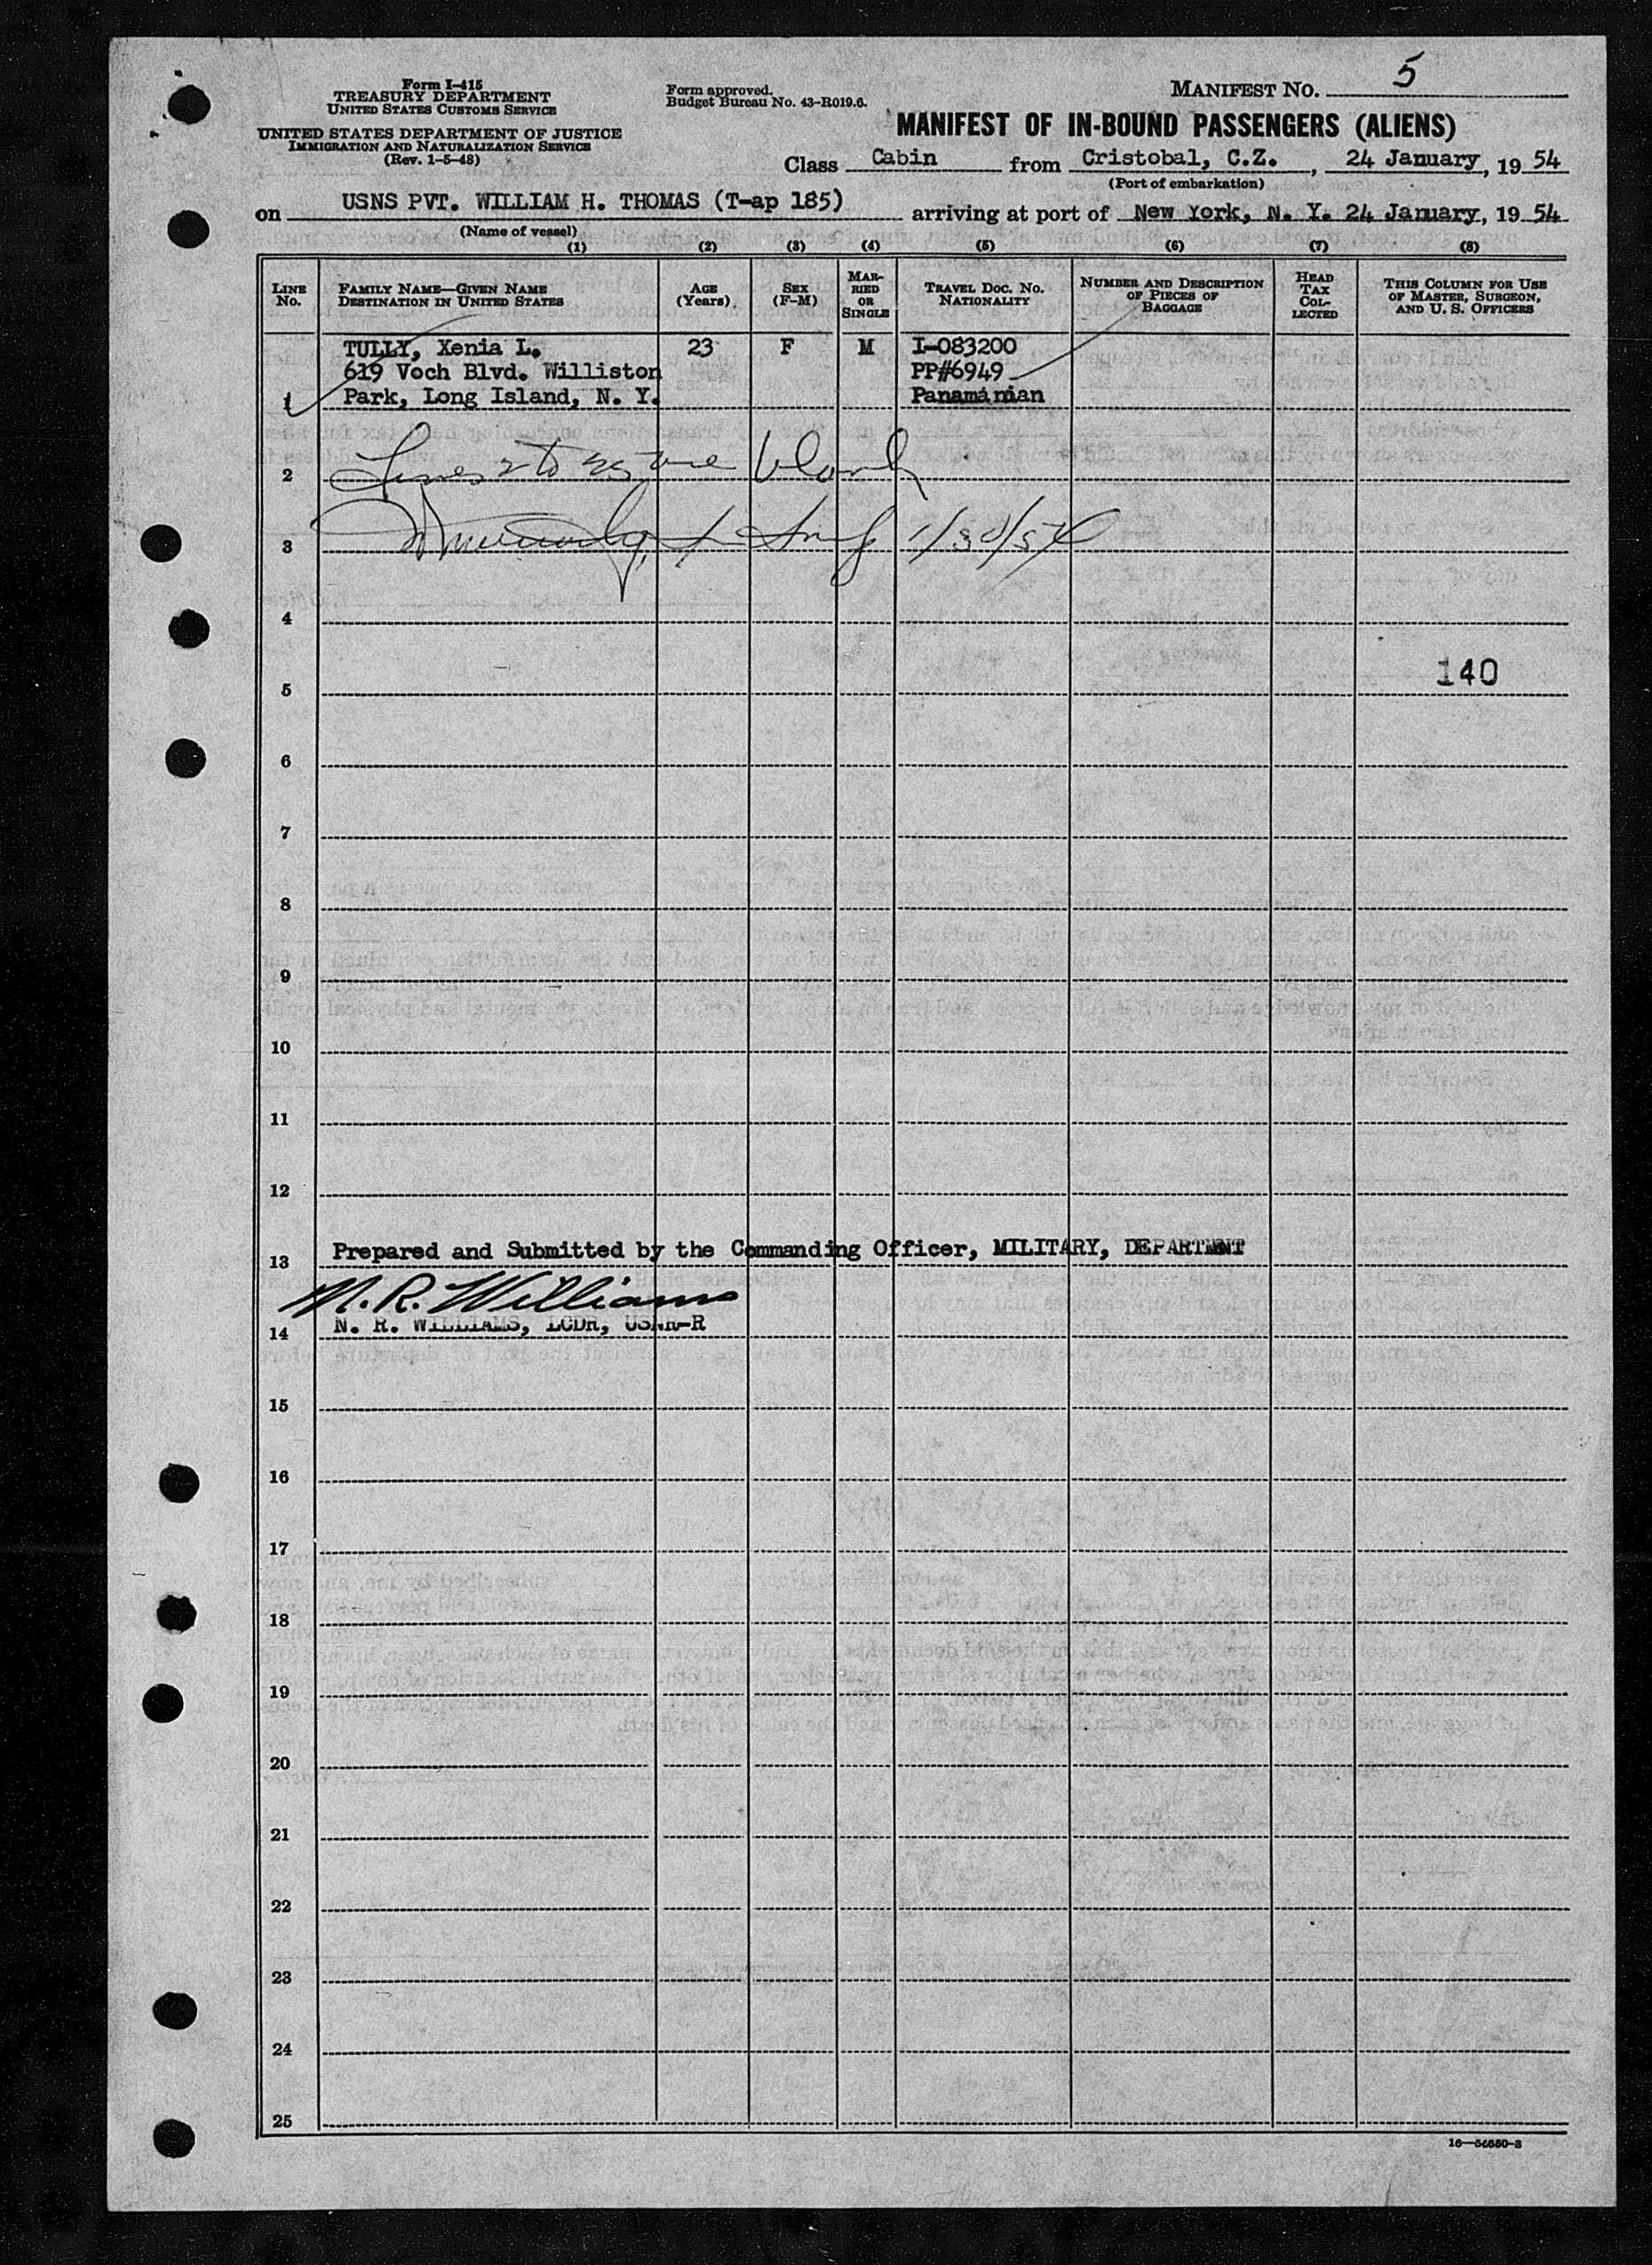 Form I-415
TREASURY DEPARTMENT
UNITED STATES CUSTOMS SERVICE
UNITED STATES DEPARTMENT OF JUSTICE
IMMIGRATION AND NATURALIZATION SERVICE
(Rev. 1-5-48)
Form approved.
Budget Bureau No. 43-R019.6.
MANIFEST NO. 5
MANIFEST OF IN-BOUND PASSENGERS (ALIENS)
Class Cabin from Cristobal, C.Z., 24 January, 19 54
(Port of embarkation)
on USNS PVT. WILLIAM H. THOMAS (T-ap 185) arriving at port of New York, N. Y. 24 January, 19 54
(Name of vessel)
(1) (2) (3) (4) (5) (6) (7) (8)
LINE No. FAMILY NAME—GIVEN NAME DESTINATION IN UNITED STATES AGE (Years) SEX (F-M) MARRIED OR SINGLE TRAVEL DOC. NO. NATIONALITY NUMBER AND DESCRIPTION OF PIECES OF BAGGAGE HEAD TAX COLLECTED THIS COLUMN FOR USE OF MASTER, SURGEON, AND U. S. OFFICERS
TULLY, Xenia L. 23 F M I-083200
619 Voch Blvd. Williston PP#6949
1 Park, Long Island, N. Y. Panamanian
2 Lines 2 to 25 are blank
3
4
5 140
6
7
8
9
10
11
12
13 Prepared and Submitted by the Commanding Officer, MILITARY, DEPARTMENT
N. R. Williams
14 N. R. WILLIAMS, LCDR, USNR-R
15
16
17
18
19
20
21
22
23
24
25
16—54650-3